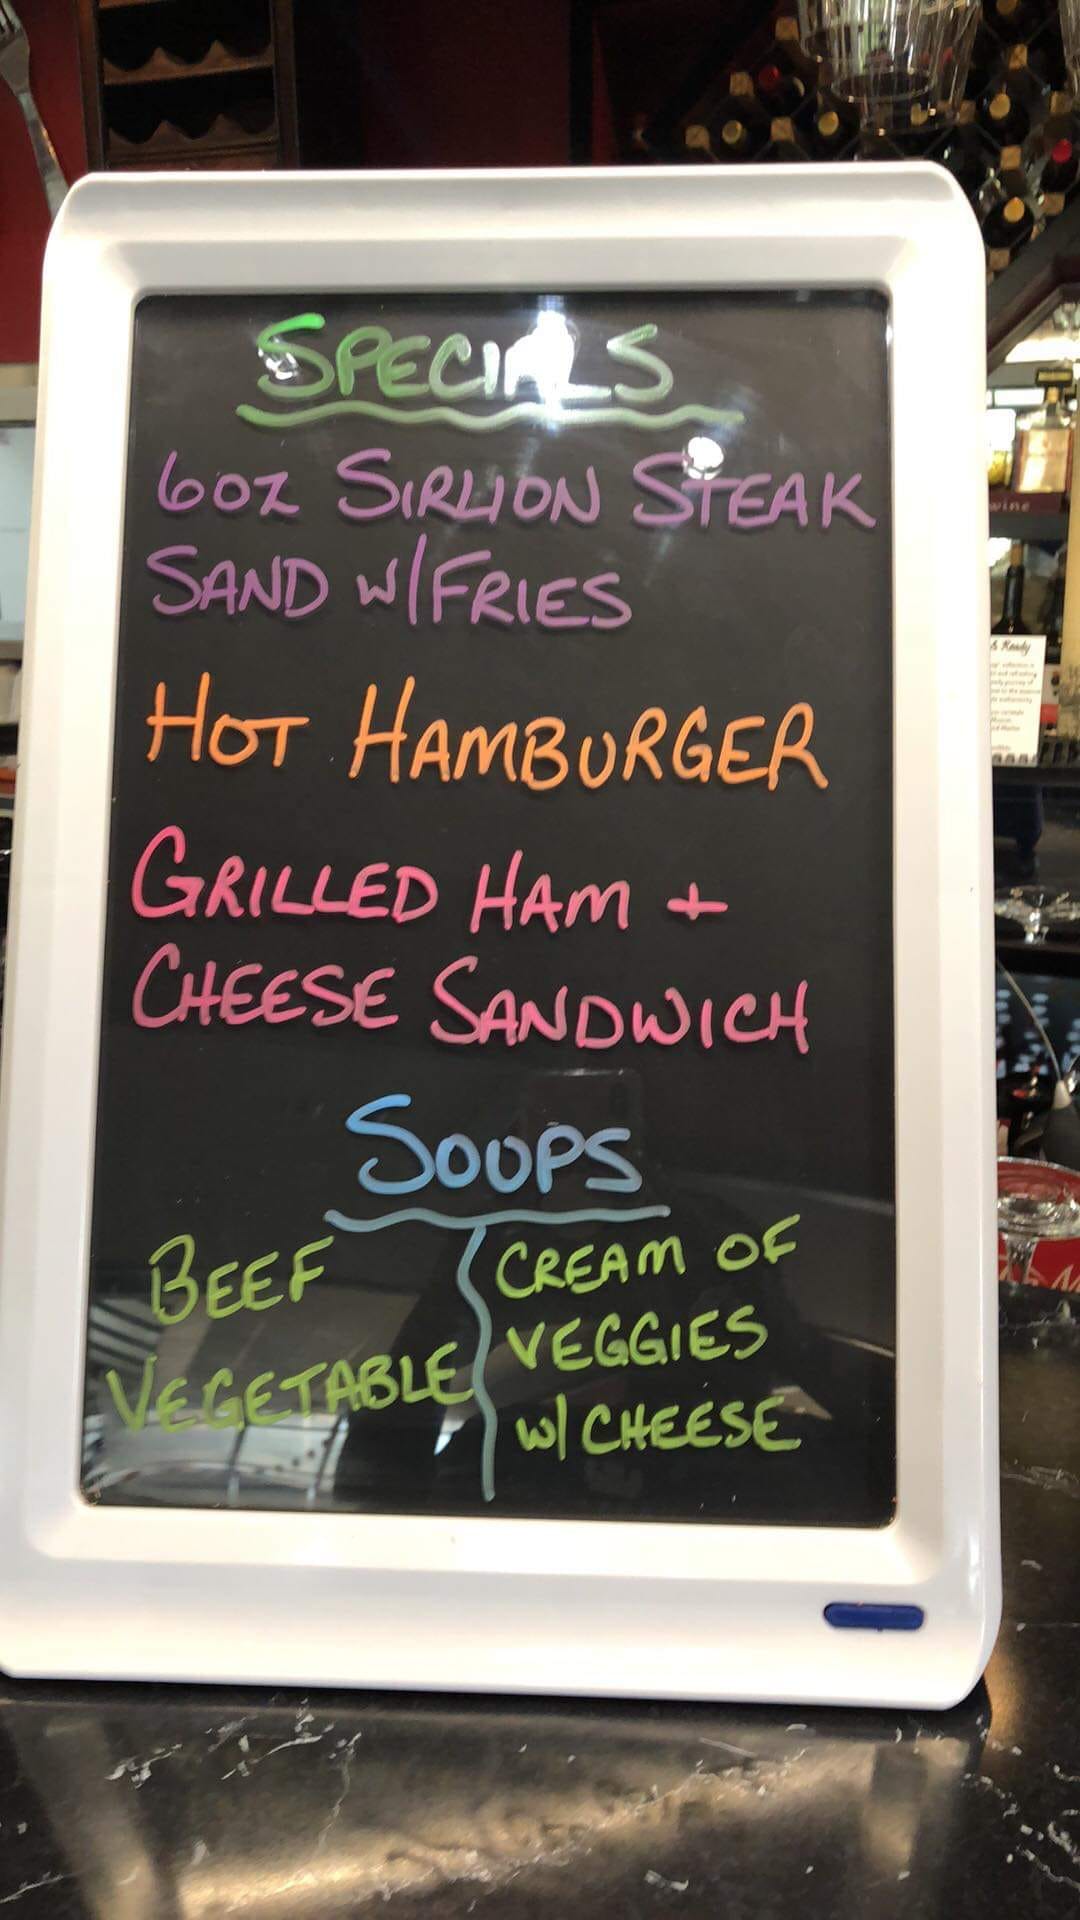 SPECIALS
6OZ SIRLION STEAK
SAND W/FRIES
HOT HAMBURGER
GRILLED HAM +
CHEESE SANDWICH
SOUPS
BEEF
VEGETABLE
CREAM OF
VEGGIES
W/ CHEESE
wine
Ready